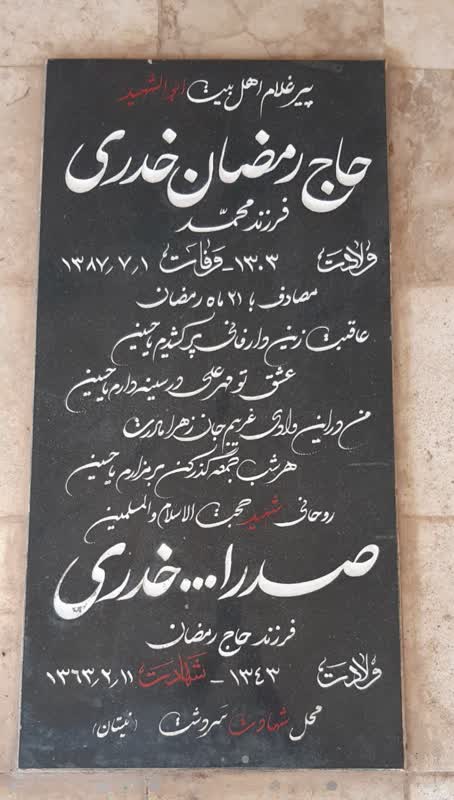 پیرغلام اهل بیت ابوالشهید
حاج رمضان خدری
فرزند محمد
ولادت ۱۳۰۳ - وفات ۱۳۸۷/۷/۱
مصادف با ۲۱ ماه رمضان
عاقبت زین دار فانی پر کشیدم یا حسین
عشق تو مهر علی در سینه دارم یا حسین
من در این وادی غریبم جان زهرا مادرت
هر شب جمعه گذر کن بر مزارم یا حسین
روحانی شهید حجت الاسلام والمسلمین
صدرا... خدری
فرزند حاج رمضان
ولادت ۱۳۴۳ - شهادت ۱۳۶۳/۲/۱۱
محل شهادت سردشت (نیستان)